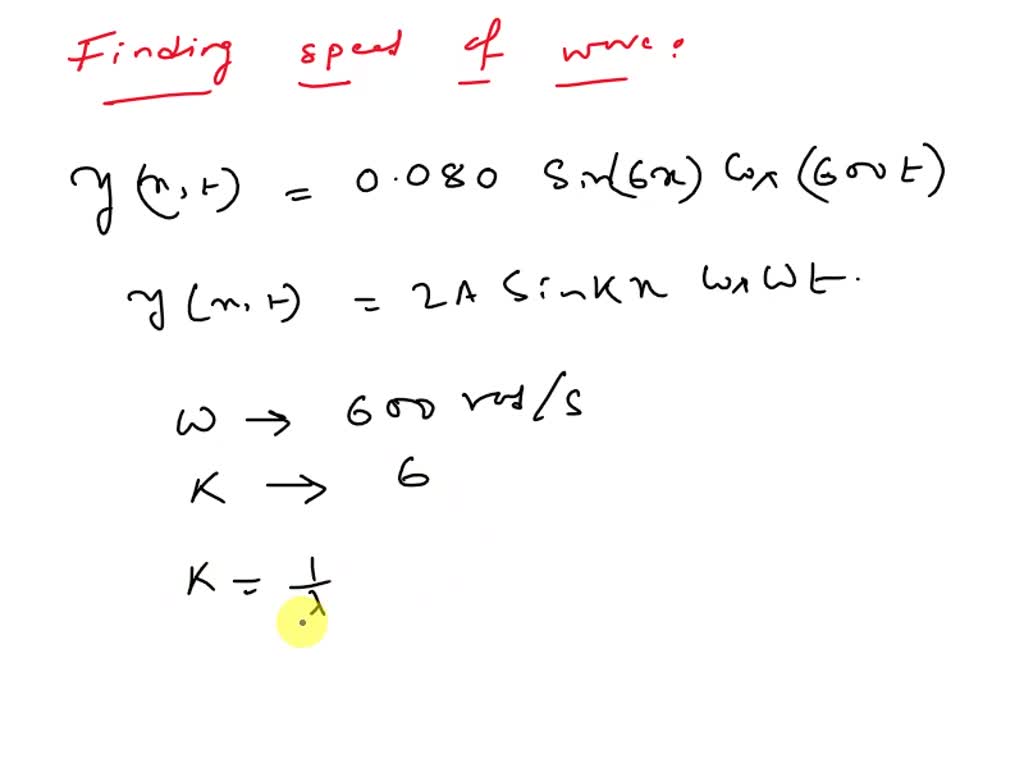 Finding speed of wave:
y(x,t) = 0.080 Sin(6x) Cos(600t)
y(x,t) = 2A Sin Kx Cos ωt.
ω → 600 rad/s
K → 6
K = 1/λ